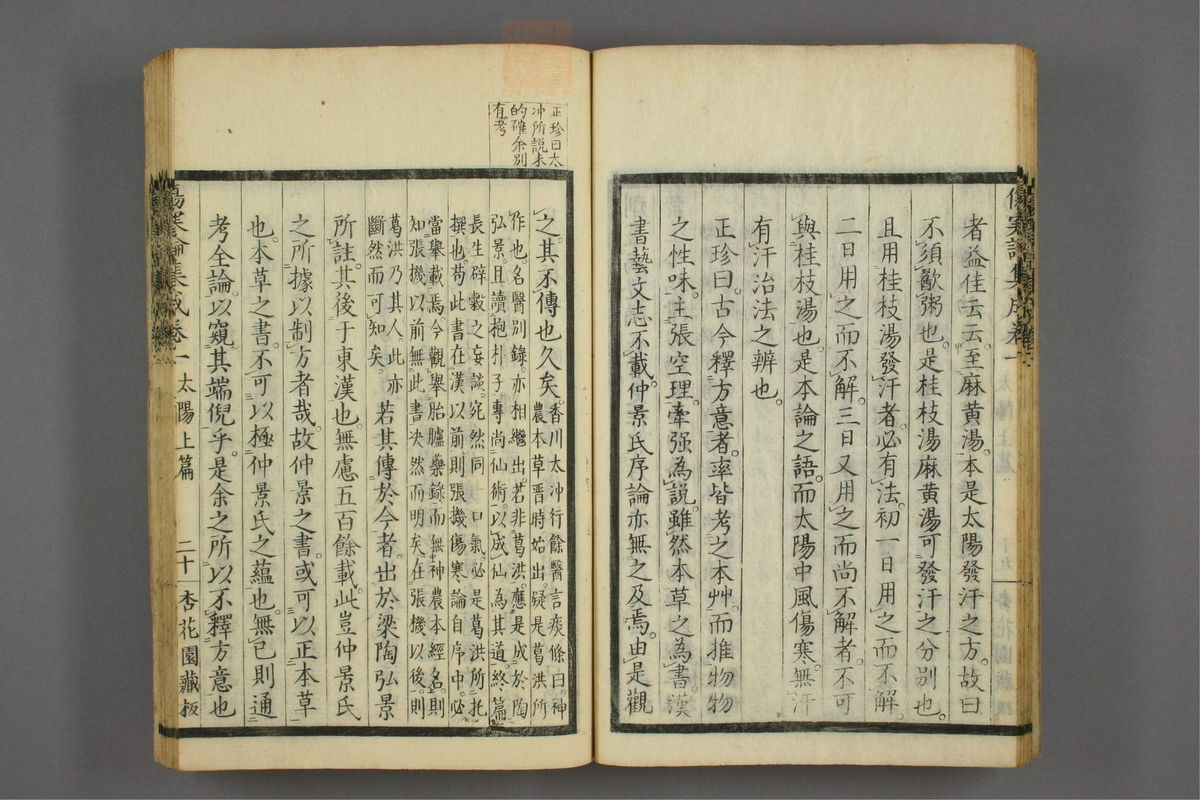 者益佳云云。至麻黄湯。本是太陽發汗之方。故曰
不須歠粥也。是桂枝湯麻黄湯可發汗之分別也。
且用桂枝湯發汗者。必有法。初一日用之而不解。
二日用之而不解。三日又用之而尚不解者。不可
與桂枝湯也。是本論之語。而太陽中風傷寒。無汗
有汗治法之辨也。
正珍曰。古今釋方意者。率皆考之本艸。而推物物
之性味。主張空理。牽强為說。雖然本草之為書。漢
書藝文志不載。仲景氏序論亦無之及焉。由是觀
之。其不傳也久矣。香川太冲行餘醫言痎條曰。神
農本草晋時始出。疑是葛洪所
作也。名醫別錄。亦相繼出。若非葛洪。應是成於陶
弘景。且讀抱朴子。專尚仙術。以成仙為其道。終篇
長生辟穀之妄談。宛然同一口氣。必是葛洪所托
撰也。苟此書在漢以前。則張機傷寒論自序中。必
當舉載焉。今觀舉胎臚藥錄。而無神農本經名。則
知張機以前無此書。決然而明矣。在張機以後。則
葛洪乃其人。此亦
斷然而可知矣。若其傳於今者。出於梁陶弘景
所註。其後于東漢也。無慮五百餘載。此豈仲景氏
之所據以制方者哉。故仲景之書。或可以正本草
也。本草之書。不可以極仲景氏之蘊也。無已則通
考全論。以窺其端倪乎。是余之所以不釋方意也
正珍曰太
冲所說未
的確余別
有考
傷寒論集成卷一
太陽上篇
二十
杏花園藏板